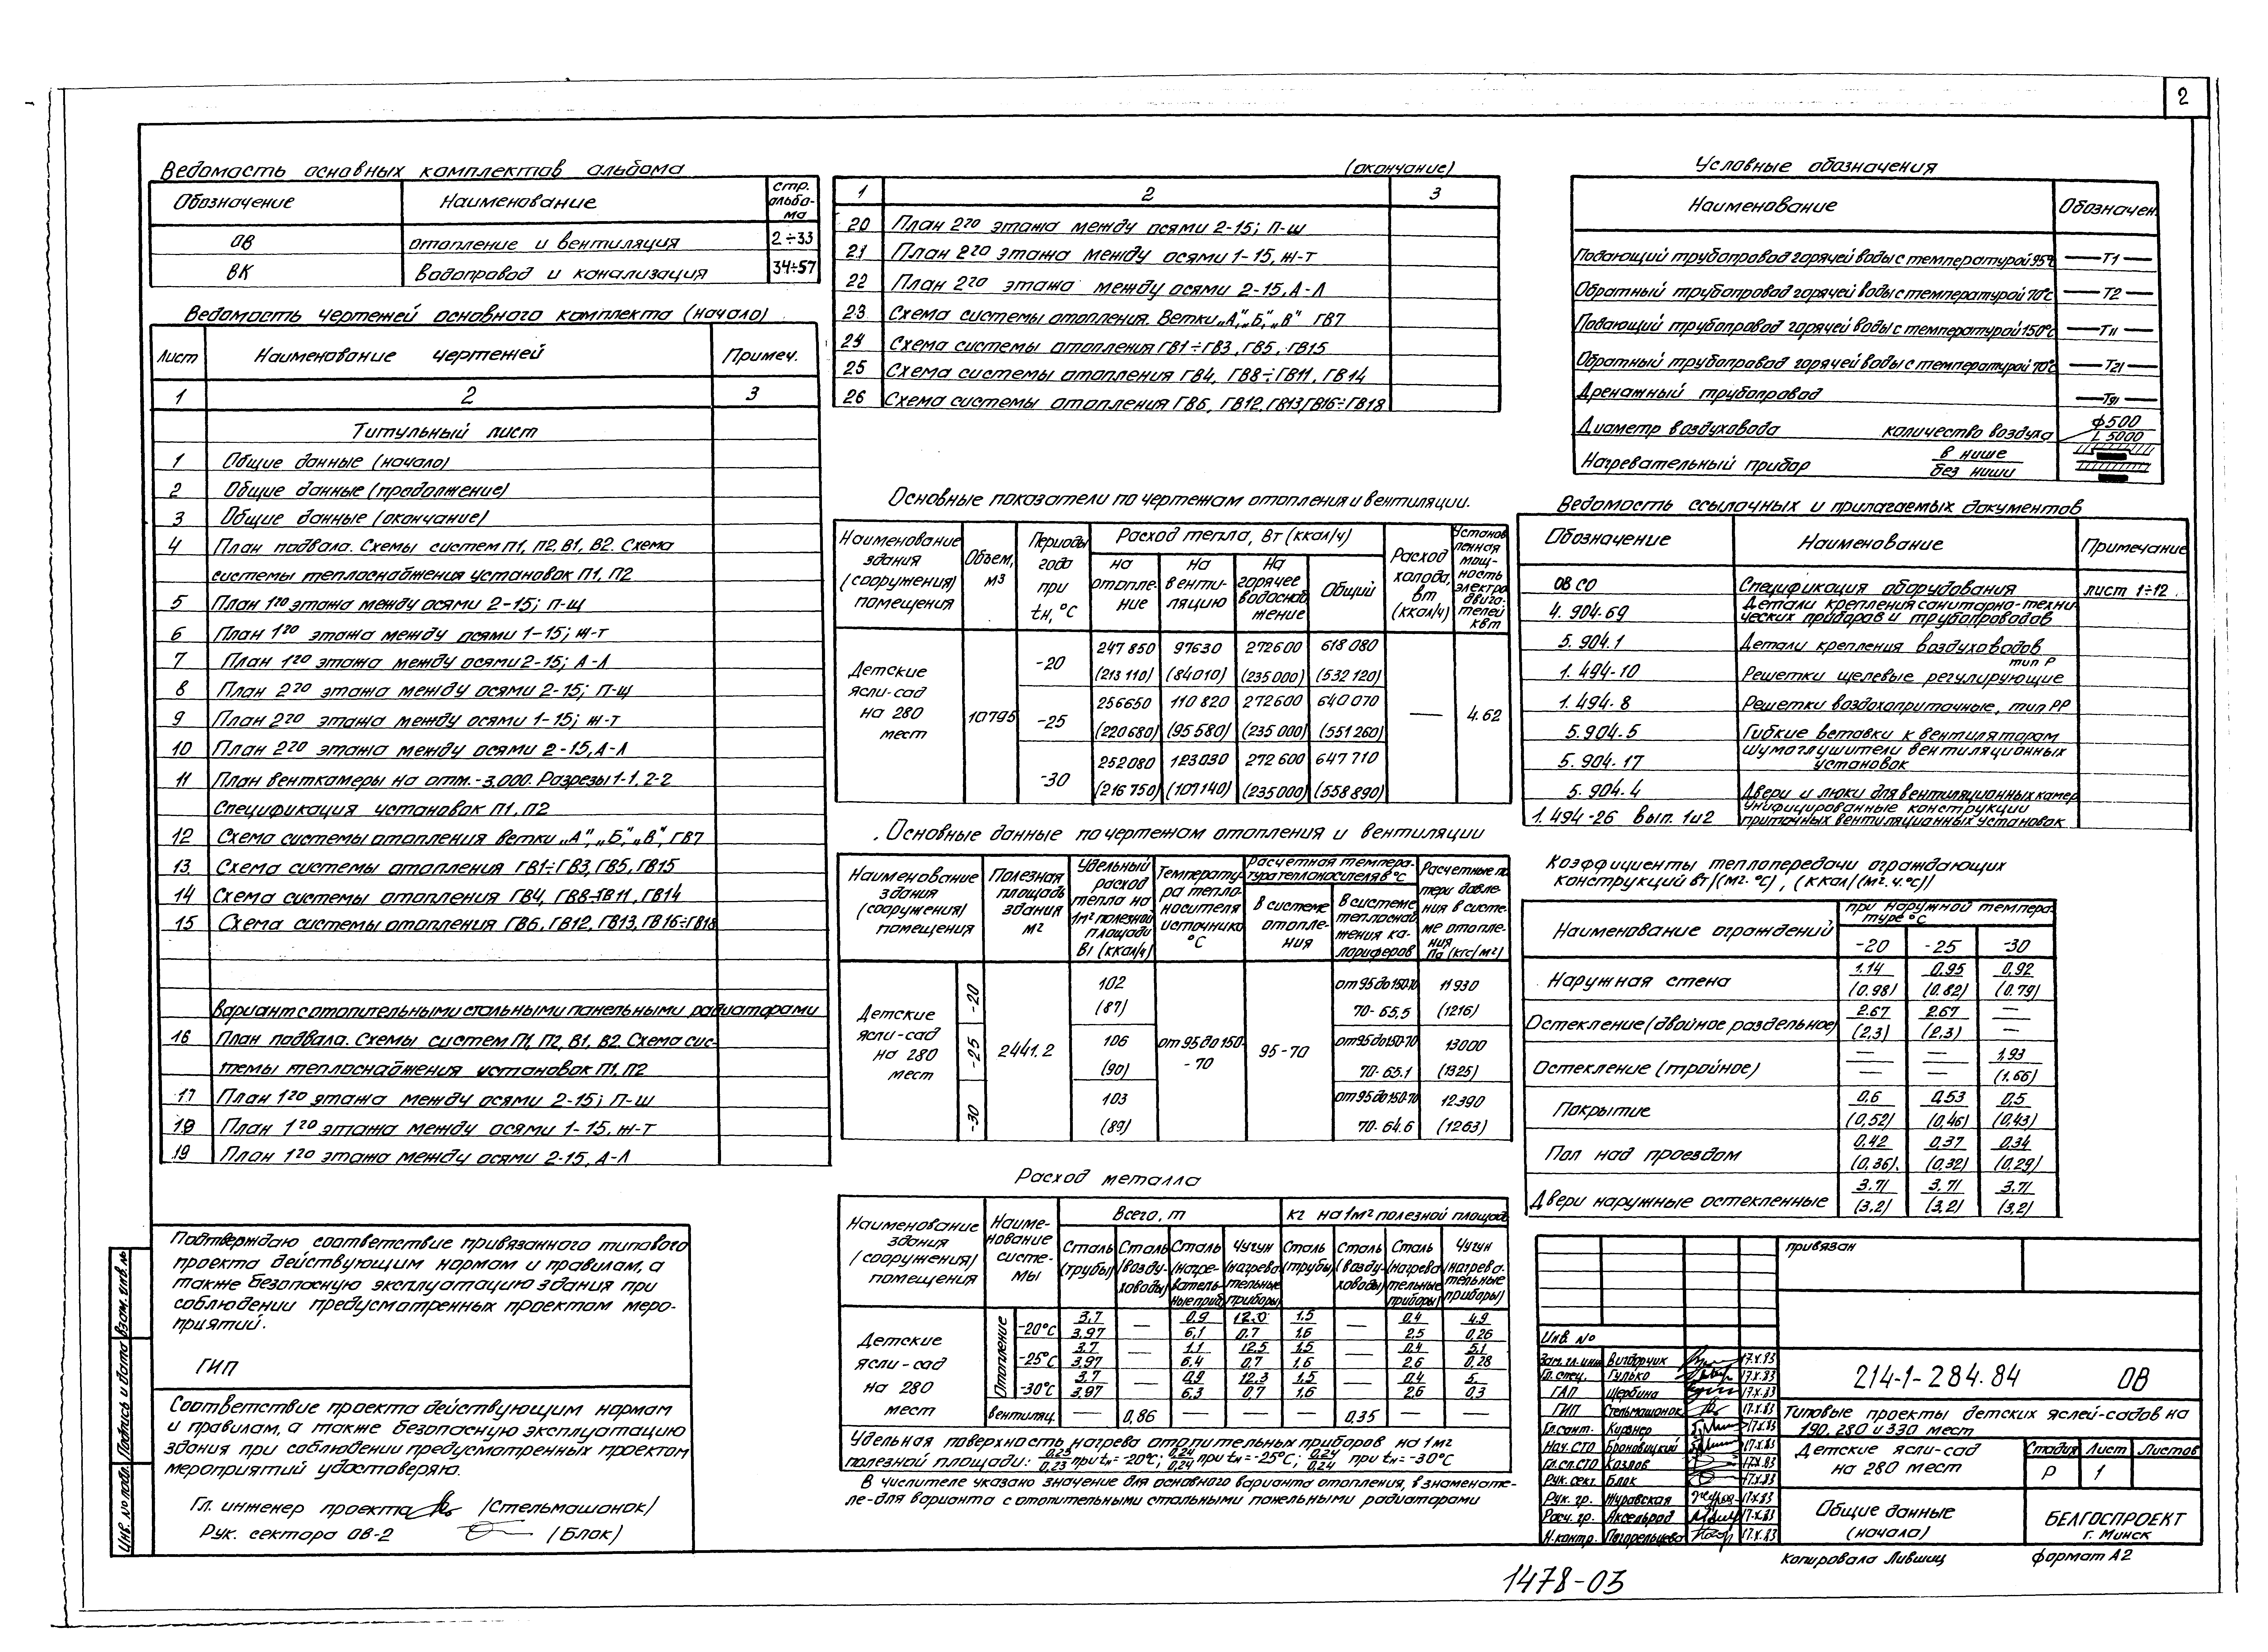 2
Ведомость основных комплектов альбома
Обозначение Наименование стр. альбо-ма
ОВ отопление и вентиляция 2÷33
ВК водопровод и канализация 34÷57
Ведомость чертежей основного комплекта (начало)
Лист Наименование чертежей Примеч.
1 2 3
Титульный лист
1 Общие данные (начало)
2 Общие данные (продолжение)
3 Общие данные (окончание)
4 План подвала. Схемы систем П1, П2, В1, В2. Схема
системы теплоснабжения установок П1, П2
5 План 1го этажа между осями 2-15; П-щ
6 План 1го этажа между осями 1-15; Ж-Т
7 План 1го этажа между осями 2-15; А-Л
8 План 2го этажа между осями 2-15; П-щ
9 План 2го этажа между осями 1-15; Ж-Т
10 План 2го этажа между осями 2-15, А-Л
11 План венткамеры на отм.-3,000. Разрезы 1-1, 2-2
Спецификация установок П1, П2
12 Схема системы отопления ветки „А", „Б", „В", ГВ7
13 Схема системы отопления ГВ1÷ГВ3, ГВ5, ГВ15
14 Схема системы отопления ГВ4, ГВ8÷ГВ11, ГВ14
15 Схема системы отопления ГВ6, ГВ12, ГВ13, ГВ16÷ГВ18
вариант с отопительными стальными панельными радиаторами
16 План подвала. Схемы систем П1, П2, В1, В2. Схема сис-
темы теплоснабжения установок П1, П2
17 План 1го этажа между осями 2-15; П-ш
18 План 1го этажа между осями 1-15, Ж-Т
19 План 1го этажа между осями 2-15, А-Л
Подтверждаю соответствие привязанного типового
проекта действующим нормам и правилам, а
также безопасную эксплуатацию здания при
соблюдении предусмотренных проектом меро-
приятий.
ГИП
Соответствие проекта действующим нормам
и правилам, а также безопасную эксплуатацию
здания при соблюдении предусмотренных проектом
мероприятий удостоверяю.
Гл. инженер проекта /Стельмашонок/
Рук. сектора ОВ-2 /Блок/
Инв. № подл. Подпись и дата Взам. инв. №
(окончание)
1 2 3
20 План 2го этажа между осями 2-15; П-ш
21 План 2го этажа между осями 1-15, Ж-Т
22 План 2го этажа между осями 2-15, А-Л
23 Схема системы отопления. Ветки „А", „Б", „В" ГВ7
24 Схема системы отопления ГВ1÷ГВ3, ГВ5, ГВ15
25 Схема системы отопления ГВ4, ГВ8÷ГВ11, ГВ14
26 Схема системы отопления ГВ6, ГВ12, ГВ13, ГВ16÷ГВ18
Основные показатели по чертежам отопления и вентиляции.
Наименование здания (сооружения) помещения Объем, м3 Периоды года при tн, °С Расход тепла, Вт (ккал/ч) Расход холода, вт (ккал/ч) Установленная мощ-ность электродвига-телей квт
на отопле-ние На венти-ляцию На горячее водоснаб жение Общий
Детские ясли-сад на 280 мест 10795 — 4.62
-20 247 850 97630 272600 618 080
(213 110) (84010) (235 000) (532 120)
-25 256650 110 820 272600 640 070
(220 680) (95 580) (235 000) (551 260)
-30 252080 123030 272 600 647 710
(216 750) (107140) (235000) (558 890)
Основные данные по чертежам отопления и вентиляции
Наименование здания (сооружения) помещения Полезная площадь здания м2 Удельный расход тепла на 1м2 полезной площади Вт (ккал/ч) Температу-ра тепло-носителя источника °С Расчетная темпера-тура теплоносителя в °С Расчетные по тери давле-ния в систе-ме отопле-ния Па (кгс/м2)
В системе отопле-ния В системе теплоснаб жения ка-лориферов
Детские ясли-сад на 280 мест 2441.2 от 95 до 150-70 95-70
-20 102 (87) от 95 до 150-70 70-65,5 11930 (1216)
-25 106 (90) от 95 до 150-70 70-65.1 13000 (1325)
-30 103 (89) от 95 до 150-70 70-64.6 12390 (1263)
Расход металла
Наименование здания (сооружения) помещения Наиме-нование систе-мы Всего, т кг на 1м2 полезной площади
Сталь (трубы) Сталь (возду-ховоды) Сталь (нагре-ватель-ные приб Чугун (нагрева-тельные приборы) Сталь (трубы) Сталь (возду-ховоды) Сталь (нагрева тельные приборы) Чугун (нагрева-тельные приборы)
Детские ясли-сад на 280 мест
Отопление
-20°С 3.7 — 0,9 12.0 1.5 — 0.4 4.9
3.97 6.1 0.7 1.6 2.5 0,26
-25°С 3.7 — 1.1 12.5 1.5 — 0.4 5.1
3.97 6.4 0.7 1.6 2.6 0,28
-30°С 3.7 — 0,9 12.3 1.5 — 0.4 5.
3.97 6.3 0.7 1.6 2.6 0.3
вентиляц. — 0,86 — — — 0.35 — —
Удельная поверхность нагрева отопительных приборов на 1м2
полезной площади: 0,23/0,23 при tн= -20°С; 0,24/0,24 при tн= -25°С; 0,24/0,24 при tн= -30°С
В числителе указано значение для основного варианта отопления, в знаменате-
ле-для варианта с отопительными стальными панельными радиаторами
Условные обозначения
Наименование Обозначен.
Подающий трубопровод горячей воды с температурой 95°С Т1
Обратный трубопровод горячей воды с температурой 70°С Т2
Подающий трубопровод горячей воды с температурой 150°С Т11
Обратный трубопровод горячей воды с температурой 70°С Т21
Дренажный трубопровод Т91
Диаметр воздуховода количество воздуха ф500 L 5000
Нагревательный прибор в нише без ниши
Ведомость ссылочных и прилагаемых документов
Обозначение Наименование Примечание
ОВ СО Спецификация оборудования лист 1÷12
4. 904.69 Детали крепления санитарно-техни-ческих приборов и трубопроводов
5. 904.1 Детали крепления воздуховодов
1. 494-10 Решетки щелевые регулирующие тип Р
1. 494-8 Решетки воздухоприточные, тип РР
5.904.5 Гибкие вставки к вентиляторам
5. 904.17 Шумоглушители вентиляционных установок
5. 904.4 Двери и люки для вентиляционных камер
1. 494-26 Вып. 1и2 Унифицированные конструкции приточных вентиляционных установок
Коэффициенты теплопередачи ограждающих
конструкций вт/(м2.°С), (ккал/(м2.ч.°С))
Наименование ограждений при наружной темпера-туре °С
-20 -25 -30
Наружная стена 1.14 0.95 0,92
(0.98) (0.82) (0.79)
Остекление (двойное раздельное) 2.67 2.67 —
(2,3) (2,3) —
Остекление (тройное) — — 1,93
— — (1.66)
Покрытие 0,6 0,53 0,5
(0,52) (0,46) (0,43)
Пол над проездом 0.42 0,37 0.34
(0,36). (0,32) (0,29)
Двери наружные остекленные 3.71 3,71 3.71
(3.2) (3,2) (3,2)
привязан
Инв. №
Зам. гл. инж Вигдорчик 17.X.83
Гл. спец. Гулько 17.X.83
ГАП Щербина 17.X.83
ГИП Стельмашонок 17.X.83
Гл.сант. Кирзнер 17.X.83
Нач. СТО Броновицкий 17.X.83
Гл.сп.СТО Козлов 17.X.83
Рук. сект. Блок 17.X.83
Рук. гр. Журавская 17.X.83
Расч. гр. Аксельрод 17.X.83
Н.контр. Погорельцева 17.X.83
214-1-284.84 ОВ
Типовые проекты детских яслей-садов на
190, 280 и 330 мест
Детские ясли-сад
на 280 мест
Стадия Лист Листов
Р 1
Общие данные
(начало)
БЕЛГОСПРОЕКТ
г. Минск
Копировала Лившиц формат А2
1478-03